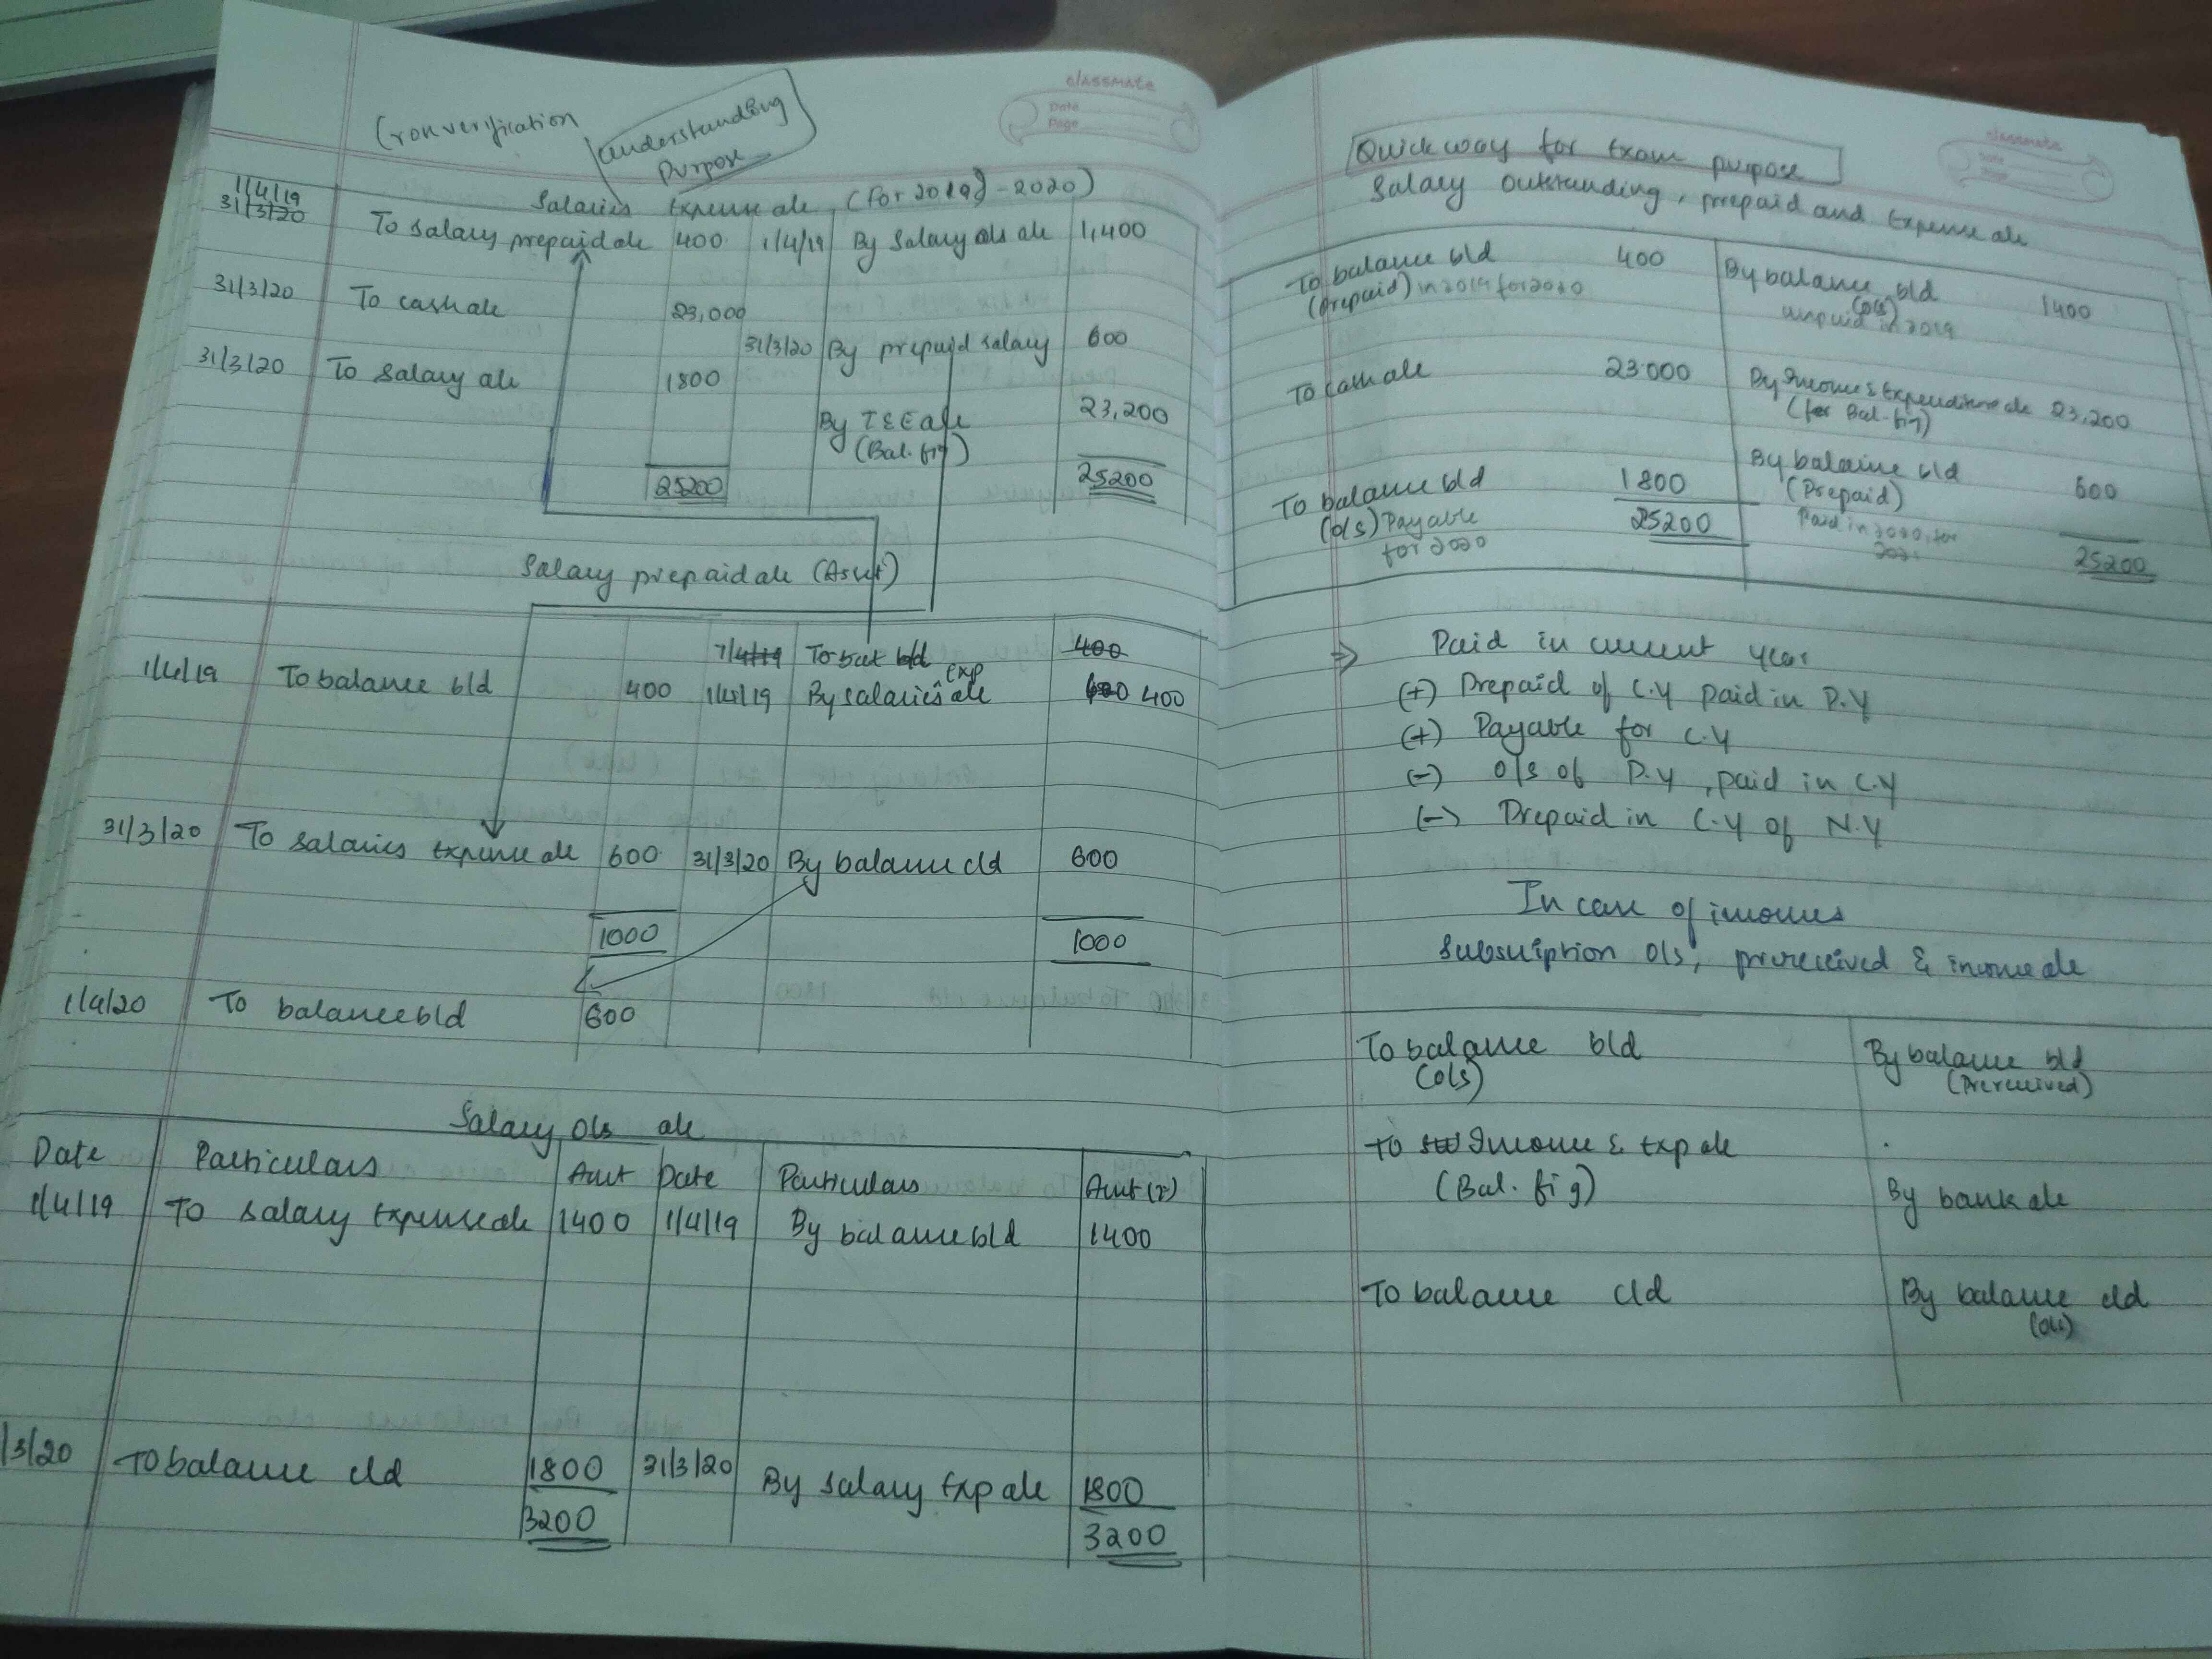 classmate
Date
Page
(ronverification
understanding
purpose
Salaries Expense a/c (for 2019-2020)
1/4/19
31/3/20 To salary prepaid a/c 400 1/4/19 By salary o/s a/c 1,400
31/3/20 To cash a/c 23,000
31/3/20 By prepaid salary 600
31/3/20 To salary a/c 1800
By I & E a/c 23,200
(Bal. fig)
25200 25200
Salary prepaid a/c (Asset)
1/4/19 To bal b/d 400
1/4/19 To balance b/d 400 1/4/19 By salaries Exp a/c 600 400
31/3/20 To salaries expense a/c 600 31/3/20 By balance c/d 600
1000 1000
1/4/20 To balance b/d 600
Salary o/s a/c
Date Particulars Amt Date Particulars Amt (₹)
1/4/19 To salary Expense a/c 1400 1/4/19 By balance b/d 1400
/3/20 To balance c/d 1800 31/3/20 By salary Exp a/c 1800
3200 3200
classmate
Date
Page
Quick way for Exam purpose
Salary outstanding, prepaid and Expense a/c
To balance b/d 400 By balance b/d 1400
(prepaid) in 2019 for 2020 (o/s)
unpaid in 2019
To cash a/c 23.000 By Income & Expenditure a/c 23,200
(for Bal. fig)
To balance b/d 1800 By balance b/d 600
(o/s) Payable (Prepaid)
for 2020 Paid in 2020, for
25200 25200
⇒ Paid in current year
(+) Prepaid of C.Y paid in P.Y
(+) Payable for C.Y
(-) o/s of P.Y, paid in C.Y
(-) Prepaid in C.Y of N.Y
In case of incomes
Subscription o/s, prereceived & income a/c
To balance b/d By balance b/d
(o/s) (Prereceived)
To Income & Exp a/c
(Bal. fig) By bank a/c
To balance c/d By balance c/d
(o/s)